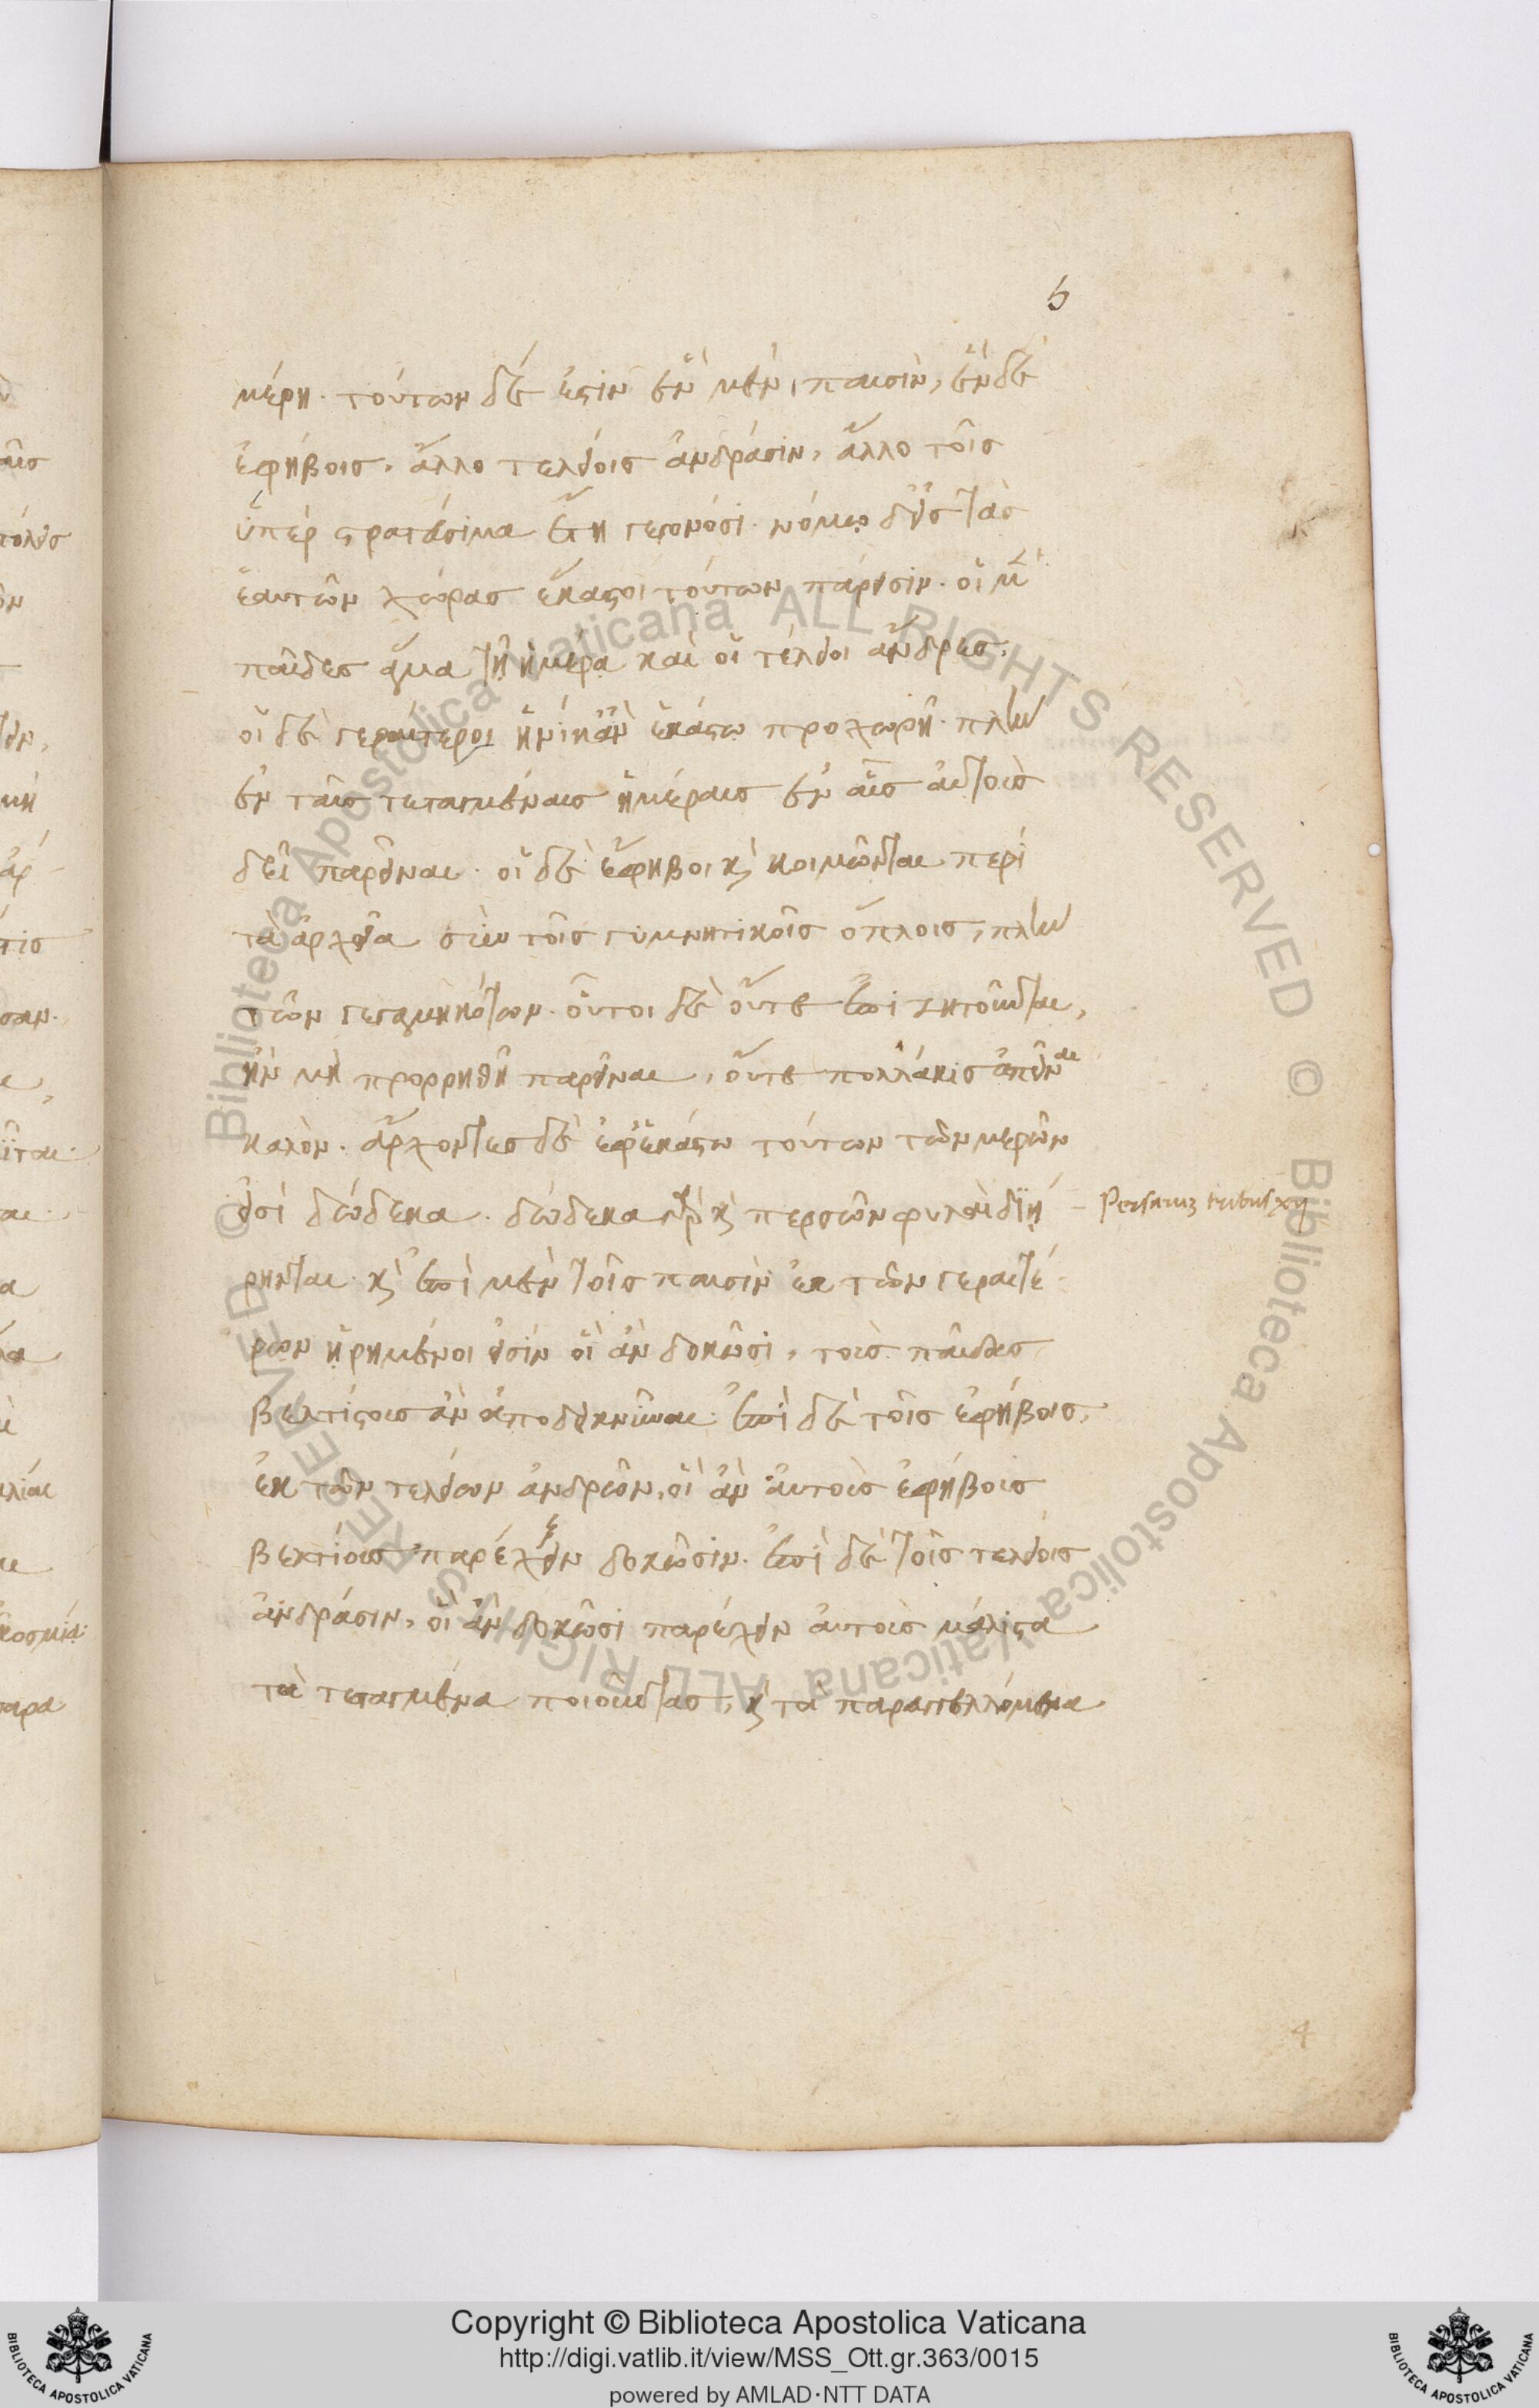 5
μέρη. τούτων δέ ἐστιν ἓν μὲν, παισὶν, ἓν δὲ
ἐφήβοις. ἄλλο τελείοις ἀνδράσιν, ἄλλο τοῖς
ὑπὲρ στρατεύσιμα ἔτη γεγονόσι. νόμῳ δ' εἰς τὰς
ἑαυτῶν χώρας ἕκαστοι τούτων πάρεισιν. οἱ μὲν
παῖδες ἅμα τῇ ἡμέρᾳ καὶ οἱ τέλειοι ἄνδρες.
οἱ δὲ γεραίτεροι ἡνίκ' ἂν ἑκάστῳ προχωρῇ. πλὴν
ἐν ταῖς τεταγμέναις ἡμέραις ἐν αἷς αὐτοὺς
δεῖ παρεῖναι. οἱ δὲ ἔφηβοι κὶ κοιμῶνται περὶ
τὰ ἀρχεῖα σὺν τοῖς γυμνητικοῖς ὅπλοις, πλὴν
τῶν γεγαμηκότων. οὗτοι δὲ οὔτε ἐπιζητοῦνται,
ἢν μὴ προρρηθῇ παρεῖναι, οὔτε πολλάκις ἀπεῖναι
καλόν. ἄρχοντες δὲ ἐφ' ἑκάστῳ τούτων τῶν μερῶν
εἰσὶ δώδεκα. δώδεκα γὰρ κὶ περσῶν φυλαὶ διῄ
Persarum tribus xij
ρηνται. κὶ ἐπὶ μὲν τοῖς παισὶν ἐκ τῶν γεραιτέ
ρων ᾑρημένοι εἰσὶν οἳ ἂν δοκῶσι, τοὺς παῖδας
βελτίστους ἂν ἀποδεικνύναι. ἐπὶ δὲ τοῖς ἐφήβοις,
ἐκ τῶν τελείων ἀνδρῶν, οἳ ἂν αὐτοὺς ἐφήβους
βελτίους παρέχειν δοκῶσιν. ἐπὶ δὲ τοῖς τελείοις
ἀνδράσιν, οἳ ἂν δοκῶσι παρέχειν αὐτοὺς μάλιστα
τὰ τεταγμένα ποιοῦντας, κὶ τὰ παραγγελλόμενα
4
Copyright © Biblioteca Apostolica Vaticana
http://digi.vatlib.it/view/MSS_Ott.gr.363/0015
powered by AMLAD·NTT DATA